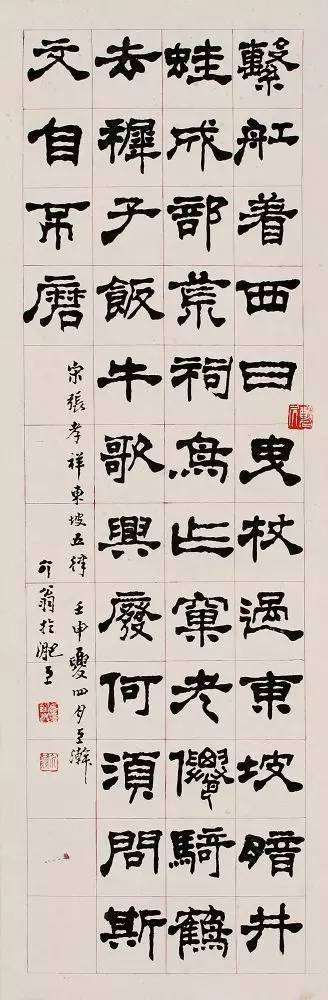 繫舡着西日曳杖過東坡暗井
蛙成部荒祠鳥乍窠老僊騎鶴
去稺子飯牛歌興廢何須問斯
文自不磨
宋張孝祥東坡五律 壬申夏四月上澣
翁於淝上